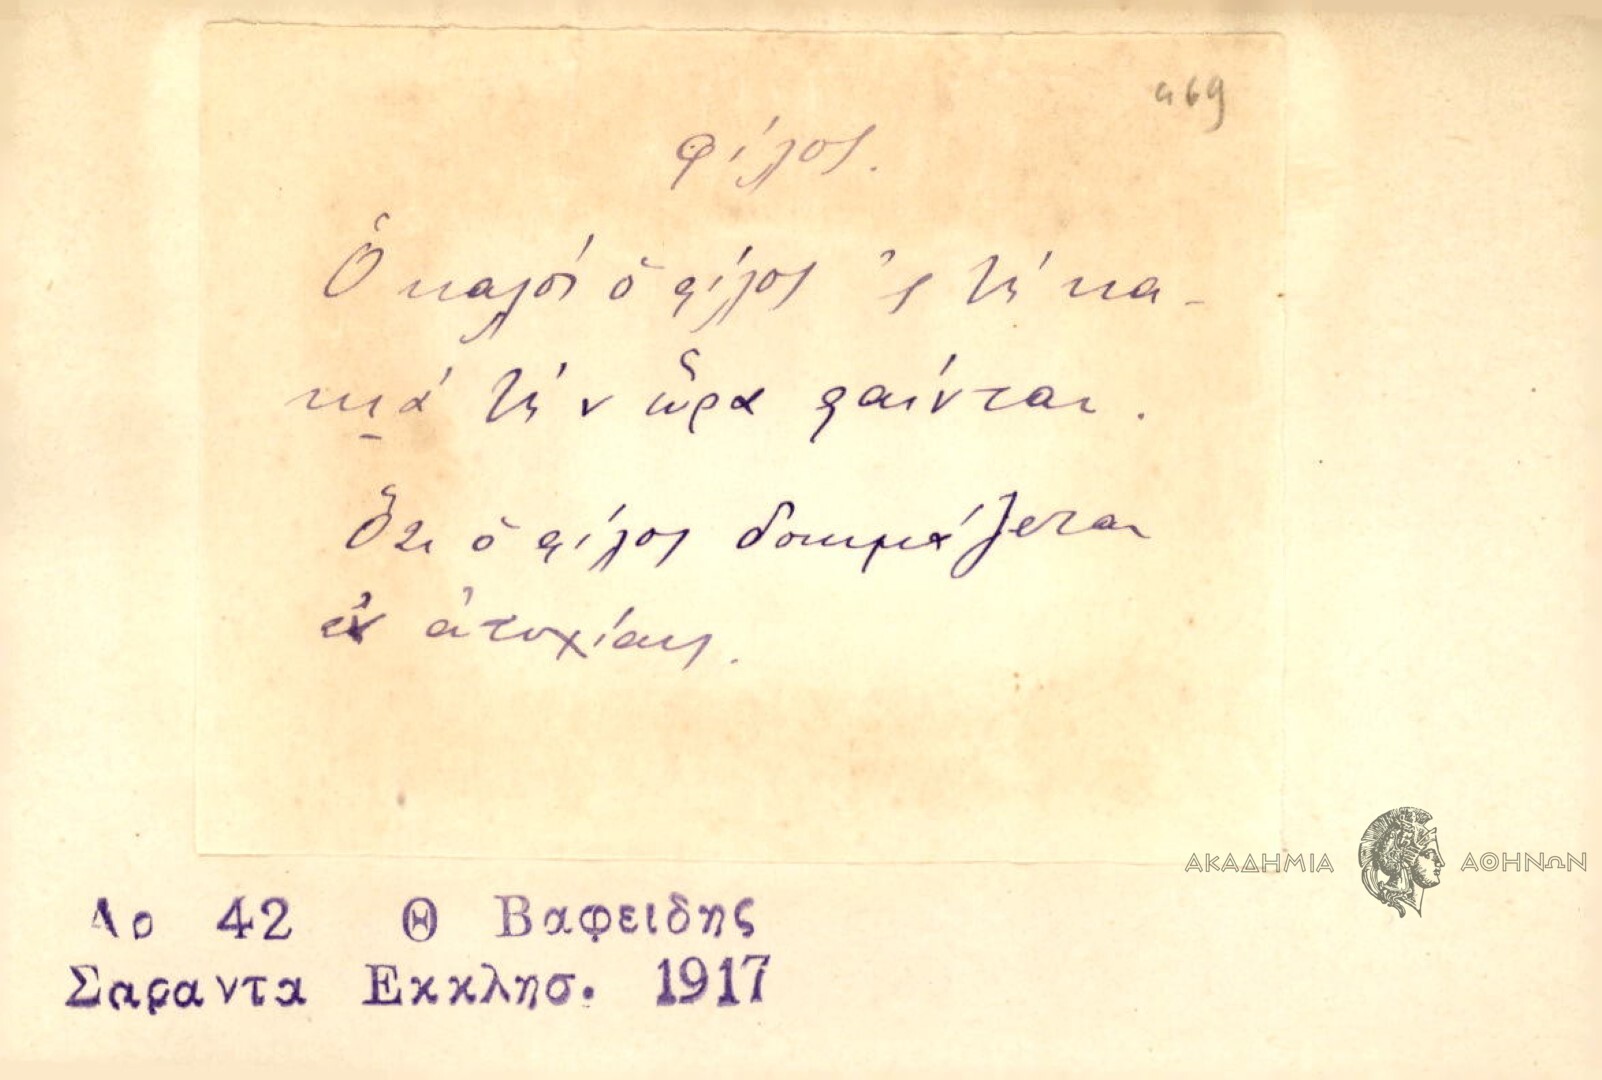 469
φίλος.
Ὁ καλὸς ὁ φίλος 'ς τὴ κα-
κιὰ τὴν ὥρα φαίνται.
Ὅτι ὁ φίλος δοκιμάζεται
ἐν ἀτυχίαις.
ΑΚΑΔΗΜΙΑ ΑΘΗΝΩΝ
Λο 42 Θ Βαφειδης
Σαραντα Εκκλησ. 1917